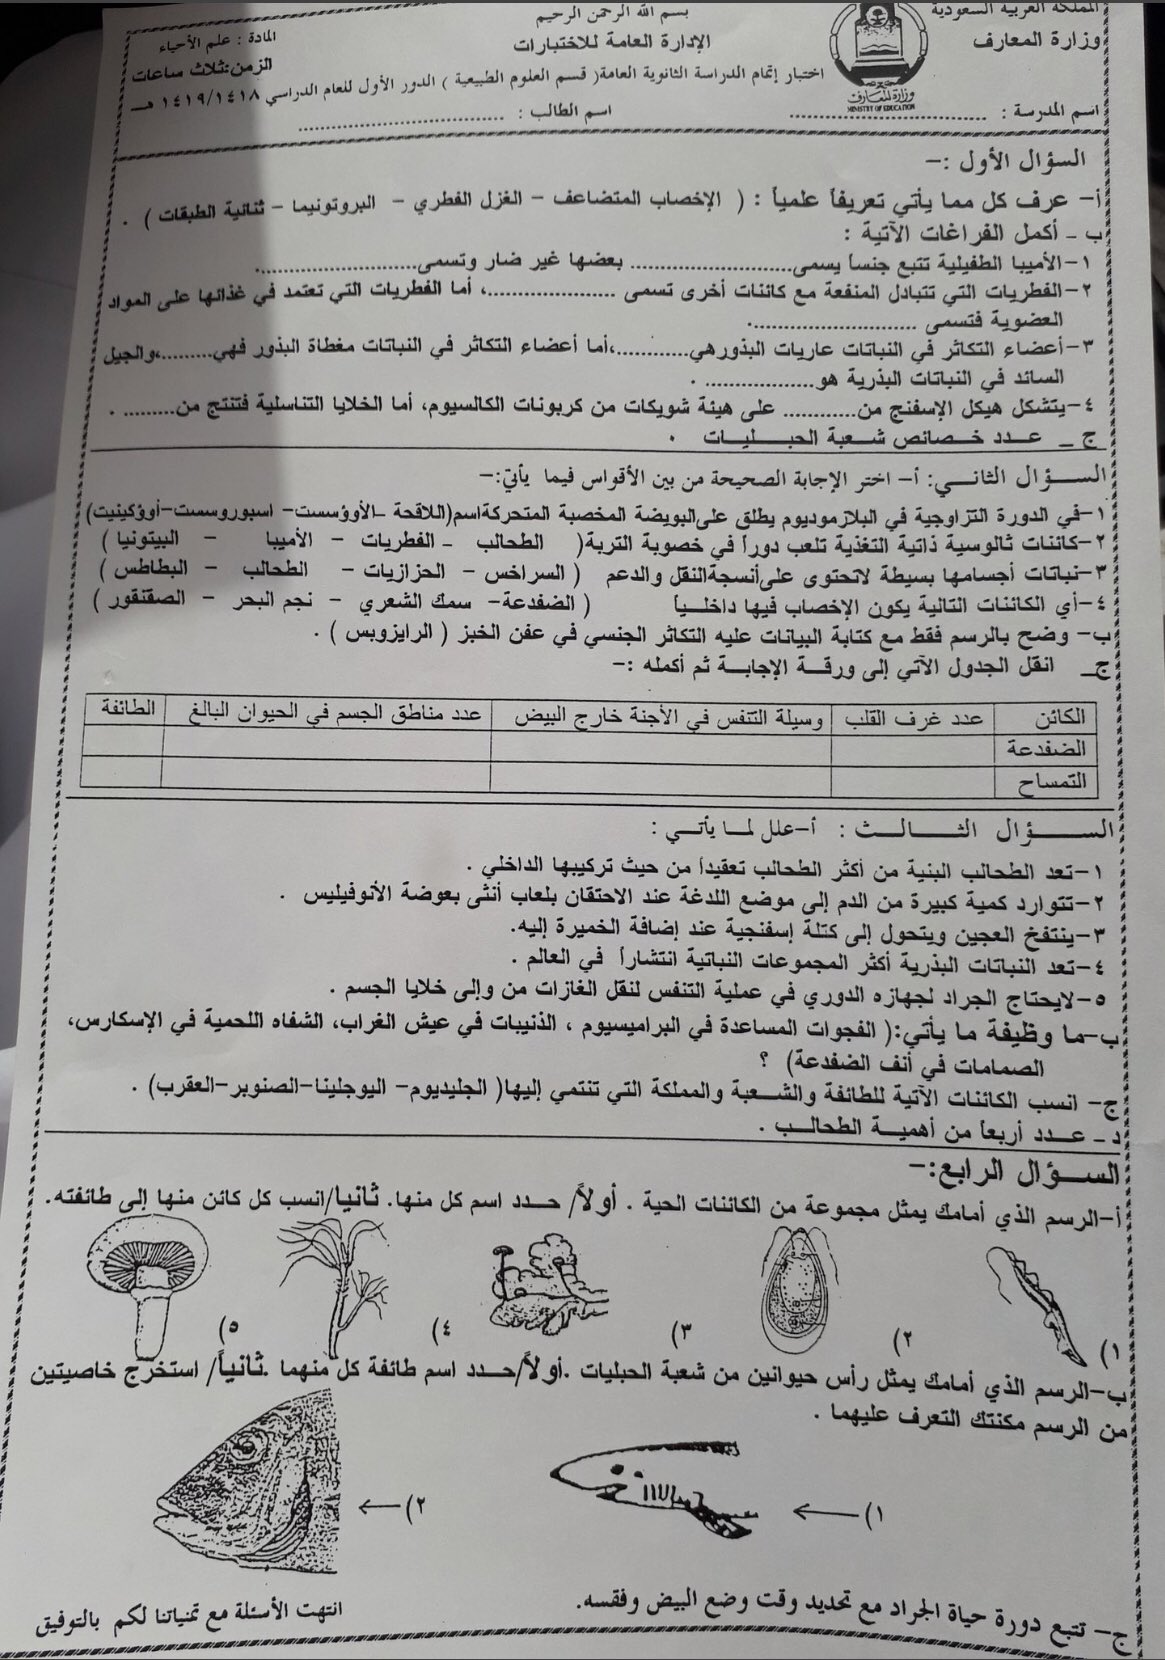 بسم الله الرحمن الرحيم
المملكة العربية السعودية
وزارة المعارف
الإدارة العامة للاختبارات
المادة : علم الأحياء
الزمن:ثلاث ساعات
اختبار إتمام الدراسة الثانوية العامة( قسم العلوم الطبيعية ) الدور الأول للعام الدراسي ١٤١٩/١٤١٨ هـ
وزارة المعارف
MINISTRY OF EDUCATION
اسم المدرسة : .................... اسم الطالب : ....................
السؤال الأول :-
أ- عرف كل مما يأتي تعريفاً علمياً : ( الإخصاب المتضاعف - الغزل الفطري - البروتونيما - ثنائية الطبقات ) .
ب - أكمل الفراغات الآتية :
١-الأميبا الطفيلية تتبع جنساً يسمى.................... بعضها غير ضار وتسمى....................
٢-الفطريات التي تتبادل المنفعة مع كائنات أخرى تسمى ..................، أما الفطريات التي تعتمد في غذائها على المواد
العضوية فتسمى ......................
٣-أعضاء التكاثر في النباتات عاريات البذورهي............،أما أعضاء التكاثر في النباتات مغطاة البذور فهي.........،والجيل
السائد في النباتات البذرية هو............... .
٤-يتشكل هيكل الإسفنج من........... على هيئة شويكات من كربونات الكالسيوم، أما الخلايا التناسلية فتنتج من......... .
ج _ عدد خصائص شعبة الحبليات .
السؤال الثاني: أ- اختر الإجابة الصحيحة من بين الأقواس فيما يأتي:-
١-في الدورة التزاوجية في البلازموديوم يطلق على البويضة المخصبة المتحركة اسم(اللاقحة -الأوؤسست- اسبوروسست-أوؤكينيت)
٢-كائنات ثالوسية ذاتية التغذية تلعب دوراً في خصوبة التربة( الطحالب - الفطريات - الأميبا - البيتونيا )
٣-نباتات أجسامها بسيطة لاتحتوى على أنسجة النقل والدعم ( السراخس - الحزازيات - الطحالب - البطاطس )
٤-أي الكائنات التالية يكون الإخصاب فيها داخلياً ( الضفدعة- سمك الشعري - نجم البحر - الصقنقور )
ب- وضح بالرسم فقط مع كتابة البيانات عليه التكاثر الجنسي في عفن الخبز ( الرايزوبس ) .
ج_ انقل الجدول الآتي إلى ورقة الإجابة ثم أكمله :-
الكائن عدد غرف القلب وسيلة التنفس في الأجنة خارج البيض عدد مناطق الجسم في الحيوان البالغ الطائفة
الضفدعة
التمساح
السؤال الثالث : أ-علل لما يأتي :
١-تعد الطحالب البنية من أكثر الطحالب تعقيداً من حيث تركيبها الداخلي .
٢-تتوارد كمية كبيرة من الدم إلى موضع اللدغة عند الاحتقان بلعاب أنثى بعوضة الأنوفيليس .
٣-ينتفخ العجين ويتحول إلى كتلة إسفنجية عند إضافة الخميرة إليه.
٤-تعد النباتات البذرية أكثر المجموعات النباتية انتشاراً في العالم .
٥-لايحتاج الجراد لجهازه الدوري في عملية التنفس لنقل الغازات من وإلى خلايا الجسم .
ب-ما وظيفة ما يأتي:( الفجوات المساعدة في البراميسيوم ، الذنيبات في عيش الغراب، الشفاه اللحمية في الإسكارس،
الصمامات في أنف الضفدعة) ؟
ج- انسب الكائنات الآتية للطائفة والشعبة والمملكة التي تنتمي إليها( الجليديوم- اليوجلينا-الصنوبر-العقرب) .
د - عدد أربعاً من أهمية الطحالب .
السؤال الرابع:-
أ-الرسم الذي أمامك يمثل مجموعة من الكائنات الحية . أولاً/ حدد اسم كل منها. ثانيا/انسب كل كائن منها إلى طائفته.
١) ٢) ٣) ٤) ٥)
ب-الرسم الذي أمامك يمثل رأس حيوانين من شعبة الحبليات .أولاً/حدد اسم طائفة كل منهما .ثانياً/ استخرج خاصيتين
من الرسم مكنتك التعرف عليهما .
١) ٢)
ج- تتبع دورة حياة الجراد مع تحديد وقت وضع البيض وفقسه.
انتهت الأسئلة مع تمنياتنا لكم بالتوفيق